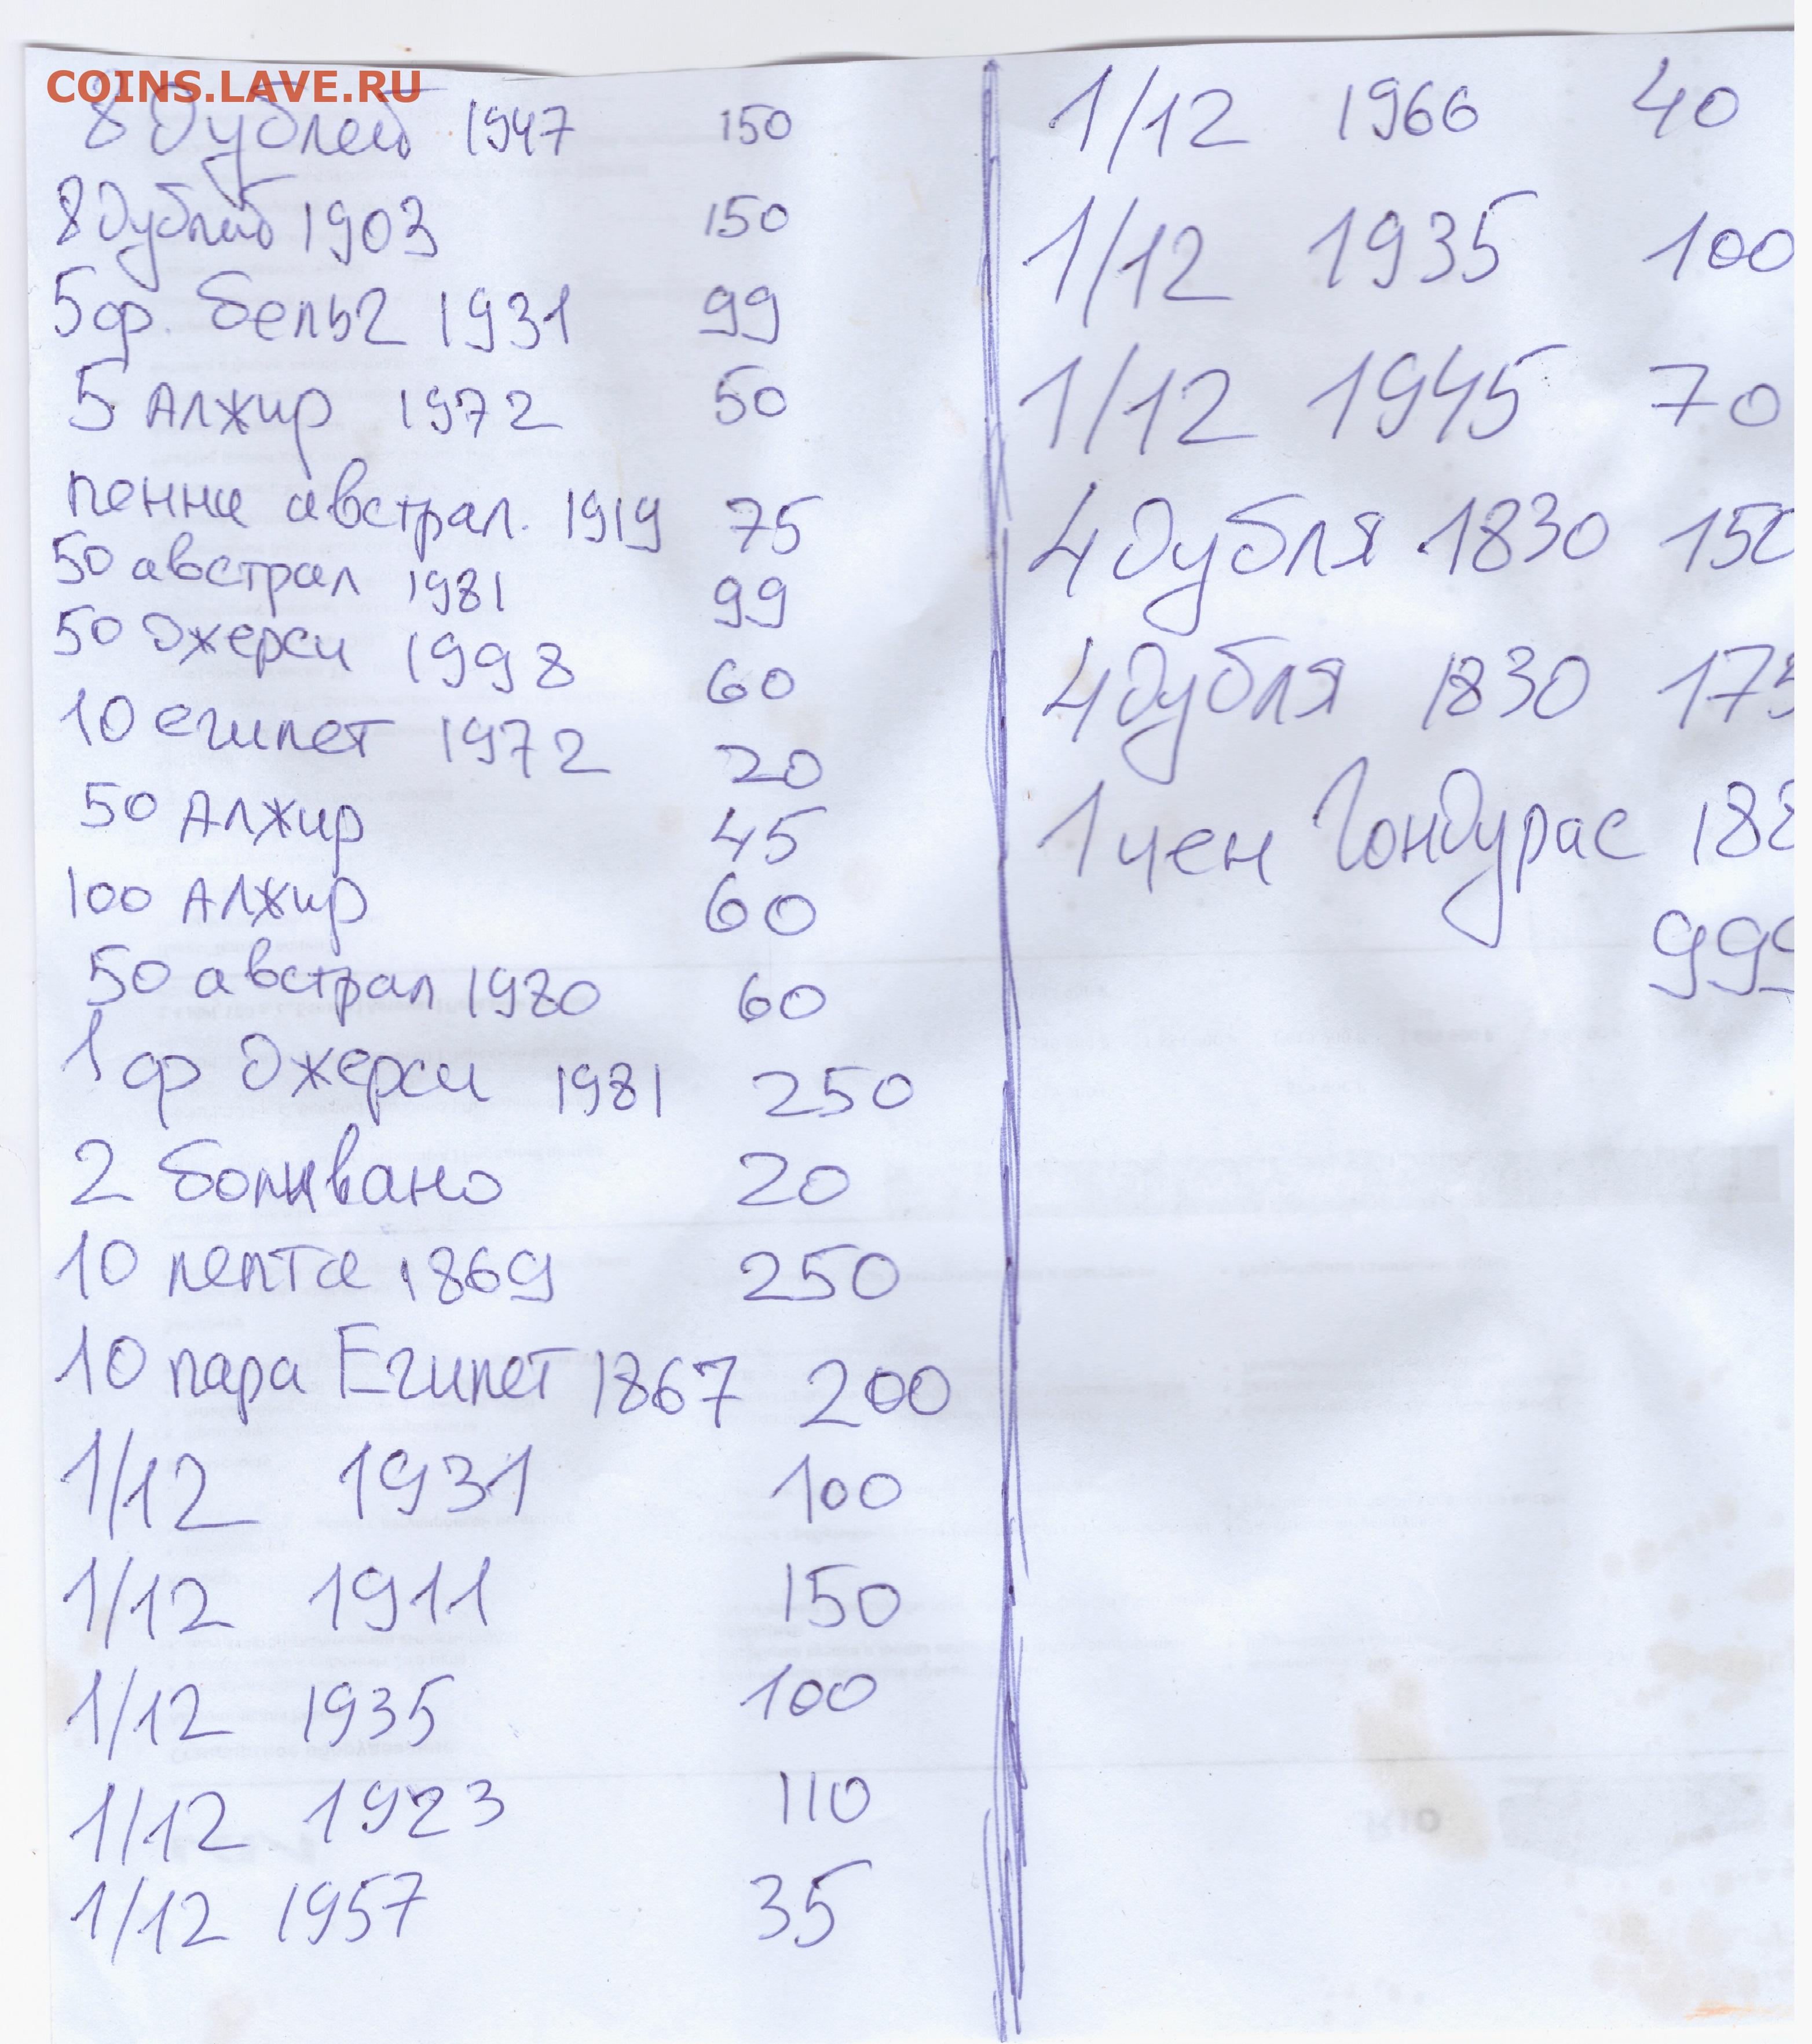 COINS.LAVE.RU
8 дублей 1947 150
8 дублей 1903 150
5 ф. бельг 1931 99
5 Алжир 1972 50
пенни австрал. 1919 75
50 австрал 1981 99
50 джерси 1998 60
10 египет 1972 20
50 Алжир 45
100 Алжир 60
50 австрал 1980 60
1 ф джерси 1981 250
2 боливано 20
10 лепта 1869 250
10 пара Египет 1867 200
1/12 1931 100
1/12 1911 150
1/12 1935 100
1/12 1923 110
1/12 1957 35
1/12 1966 40
1/12 1935 100
1/12 1945 70
4 дубля 1830 150
4 дубля 1830 175
1 цен Гондурас